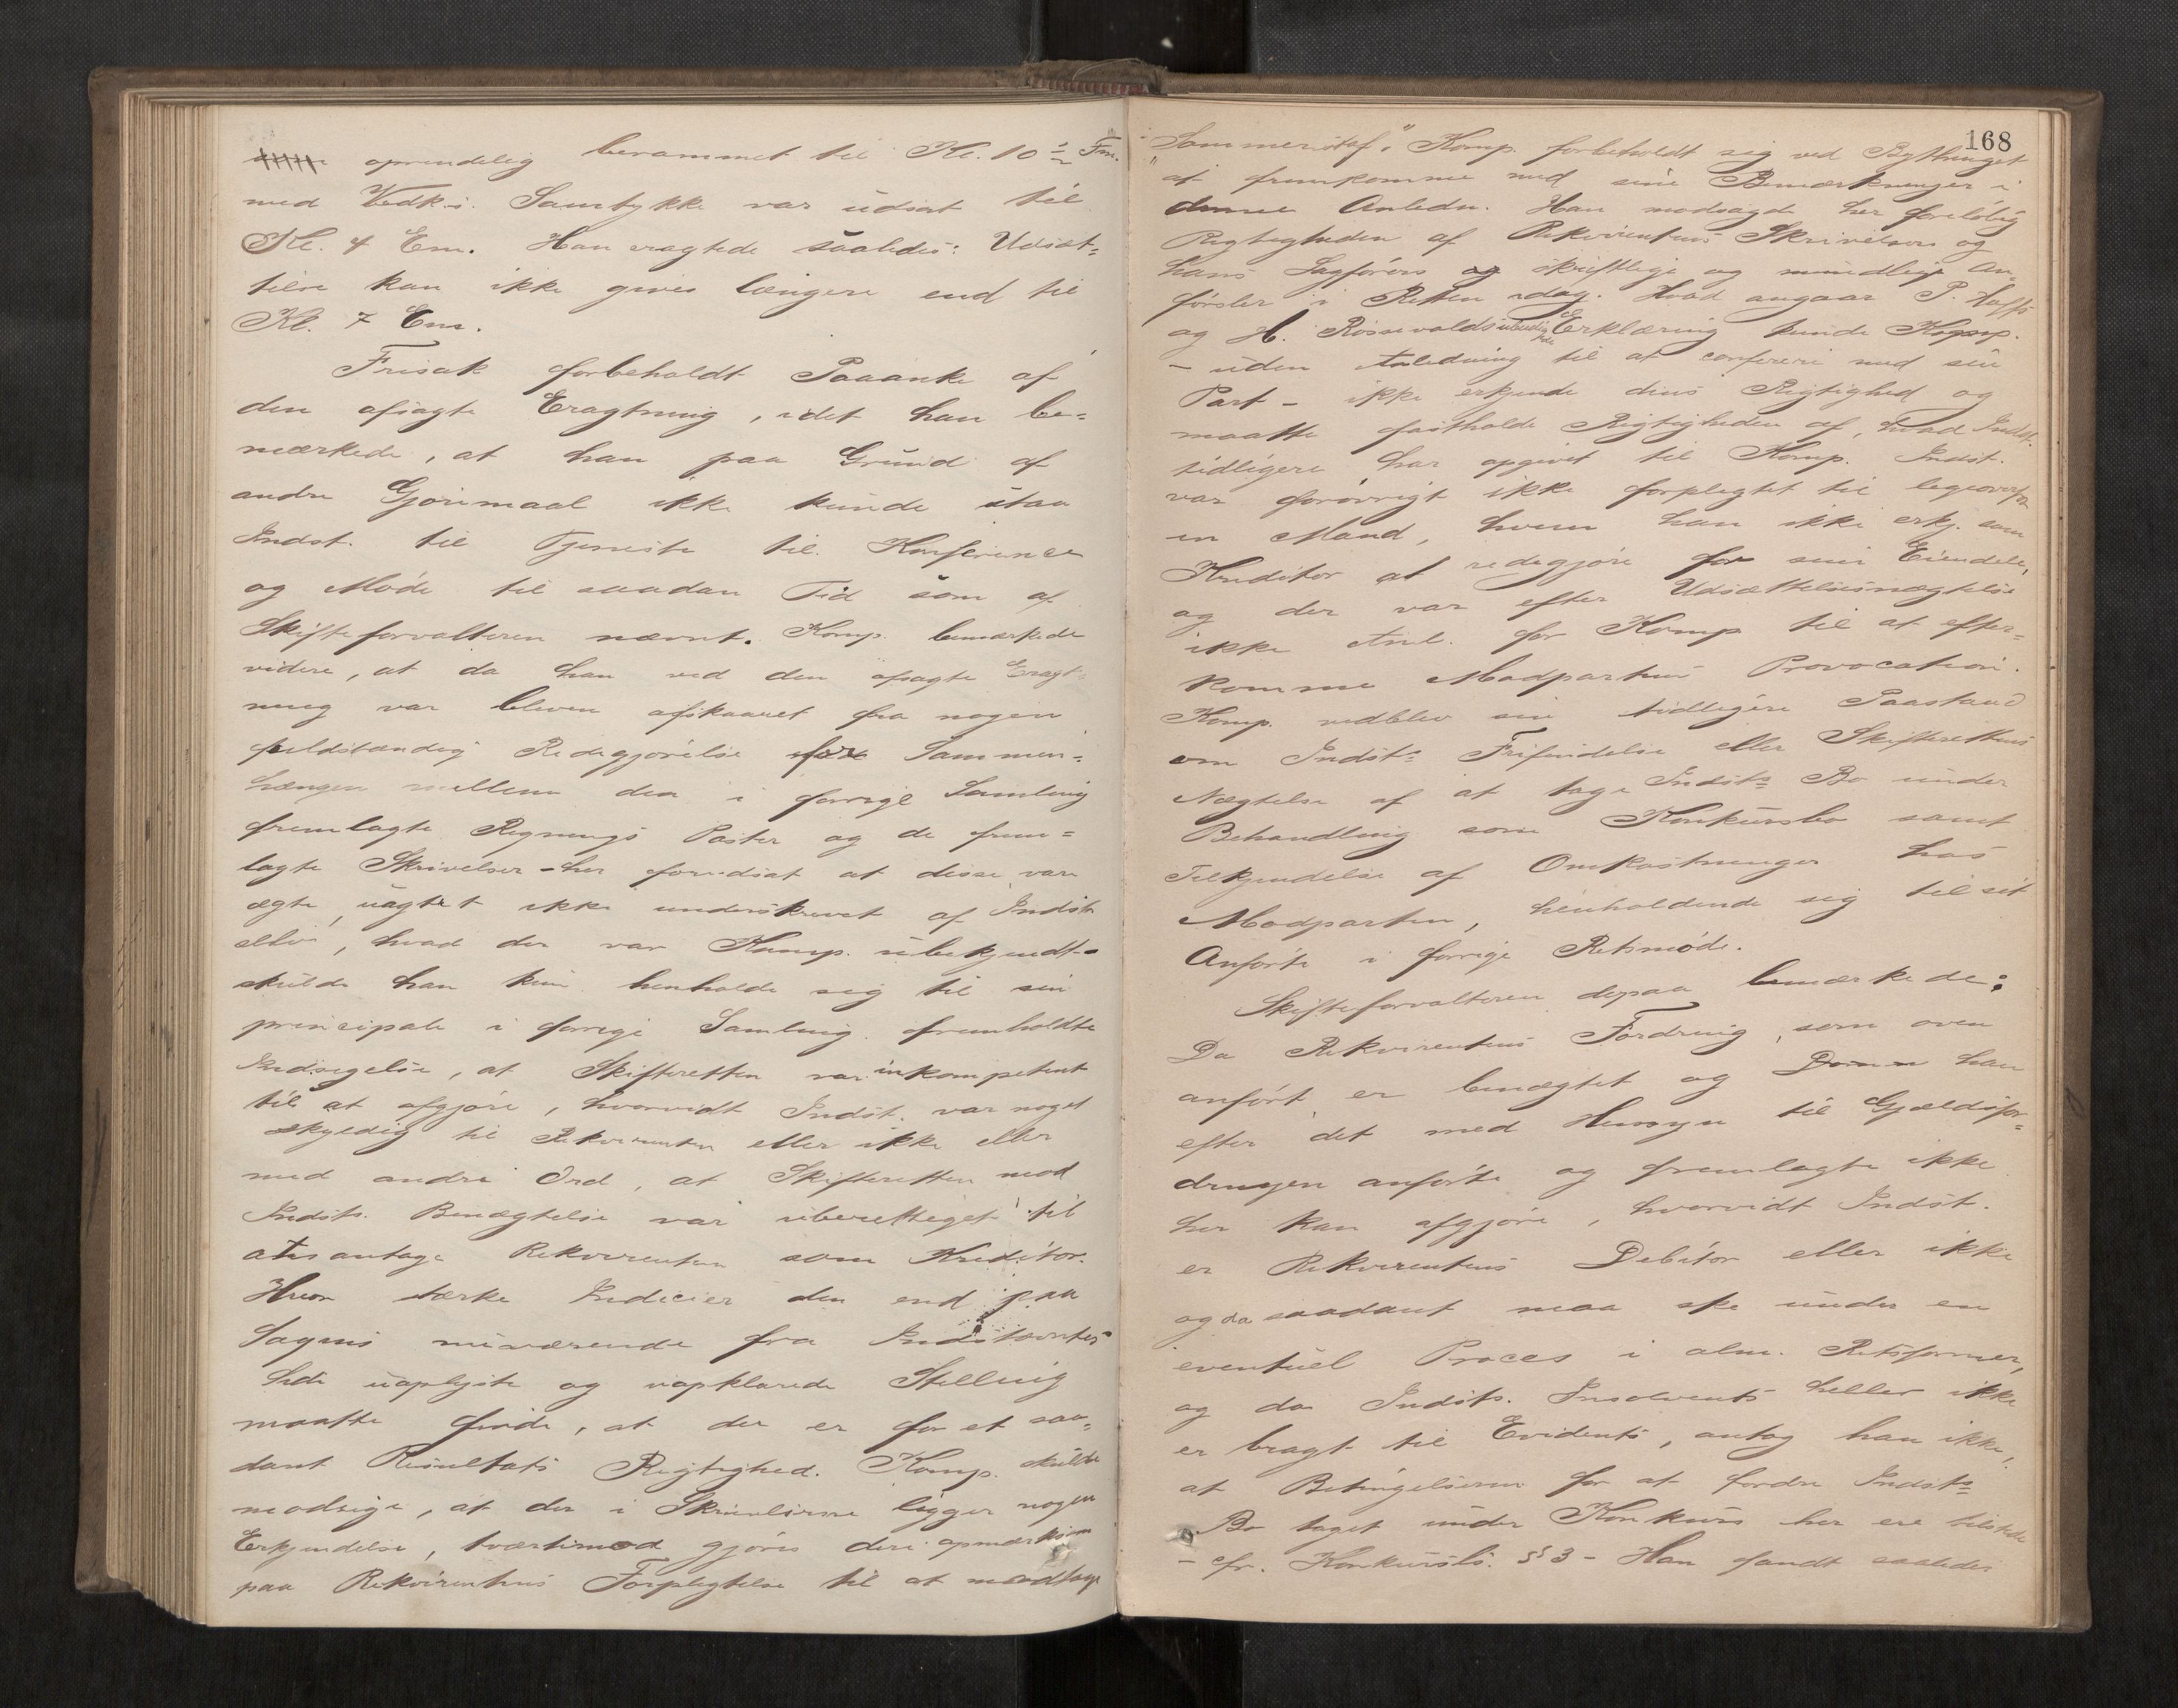 oprindelig berammet til Kl. 10 ½ Fm.
med Vedk.s. Samtykke var udsat til
Kl. 4 Em. Han eragtede saaledes: Udsæt-
telse kan ikke gives længere end til
Kl. 7 Em.
Frisak forbeholdt Paaanke af
den afsagte Eragtning, idet han be-
mærkede, at han paa Grund af
andre Gjøremaal ikke kunde staa
Indst. til Tjeneste til Konference
og Møde til saadan Tid som af
Skifteforvalteren nævnt. Komp. bemærkede
videre, at da han ved den afsagte Eragt-
ning var bleven afskaaret fra nogen
fuldstændig Redegjørelse for Sammen-
hængen mellem den i forrige Samling
fremlagte Regnings Poster og de frem-
lagte Skrivelser - her forudsat at disse vare
ægte, uagtet ikke underskrevet af Indst.
selv, hvad der var Komp. ubekjendt -
skulde han kun henholde sig til sin
principale i forrige Samling fremholdte
Indsigelse, at Skifteretten var inkompetent
til at afgjøre, hvorvidt Indst. var noget
skyldig til Rekvirenten eller ikke eller
med andre Ord, at Skifteretten mod
Indsts. Benægtelse var uberettiget til
at antage Rekvirenten som Kreditor.
Hvor stærke Indicier den end paa
Sagens nuværende fra Indstævntes
Side uoplyste og uopklarede Stilling
maatte finde, at der er for et saa-
dant Resultats Rigtighed. Komp. skulde
modsige, at der i Skrivelserne ligger nogen
Erkjendelse, tværtimod gjøres deri opmærksom
paa Rekvirentens Forpligtelse til at modtage
168
Komp. forbeholdt sig ved
at fremkomme med sine Bemærkninger i
denne Anledn. Han modsagde her foreløbig
Rigtigheden af Rekvirentens Skrivelser og
hans Sagførers og skriftlige og mundlige An-
førsler i Retten idag. Hvad angaar P.
og H. Rosevolds Erklæring kunde Komp.
- uden Anledning til at conferere med sin
Part - ikke erkjende dens Rigtighed og
maatte fastholde Rigtigheden af, hvad Indst.
tidligere har opgivet til Komp. Indst.
var forøvrigt ikke forpligtet til ligeoverfor
en Mand, hvem han ikke erkj. som
Kreditor at redegjøre for sine Eiendele,
og der var efter Udsættelsesnægtelse
ikke Anl. for Komp til at efter-
komme Modpartens Provocation.
Komp. vedblev sin tidligere Paastand
om Indsts Frifindelse eller Skifterettens
Nægtelse af at tage Indsts Bo under
Behandling som Konkursbo samt
Tilkjendelse af Omkostninger hos
Modparten, henholdende sig til sit
Anførte i forrige Retsmøde.
Skifteforvalteren derpaa bemærkede:
Da Rekvirentens Fordring, som oven
anført er benægtet og Domm han
efter det med Hensyn til Gjældsfor-
dringen anførte og fremlagte ikke
her kan afgjøre, hvorvidt Indst.
er Rekvirentens Debitor eller ikke
og da saadant maa ske under en
eventuel Proces i alm. Retsformer,
og da Indsts. Insolvents heller ikke
er bragt til Evidents, antog han ikke,
at Betingelserne for at fordre Indsts
Bo taget under Konkurs her ere tilstede
- cfr. Konkursls. §§ 3 - Han fandt saaledes